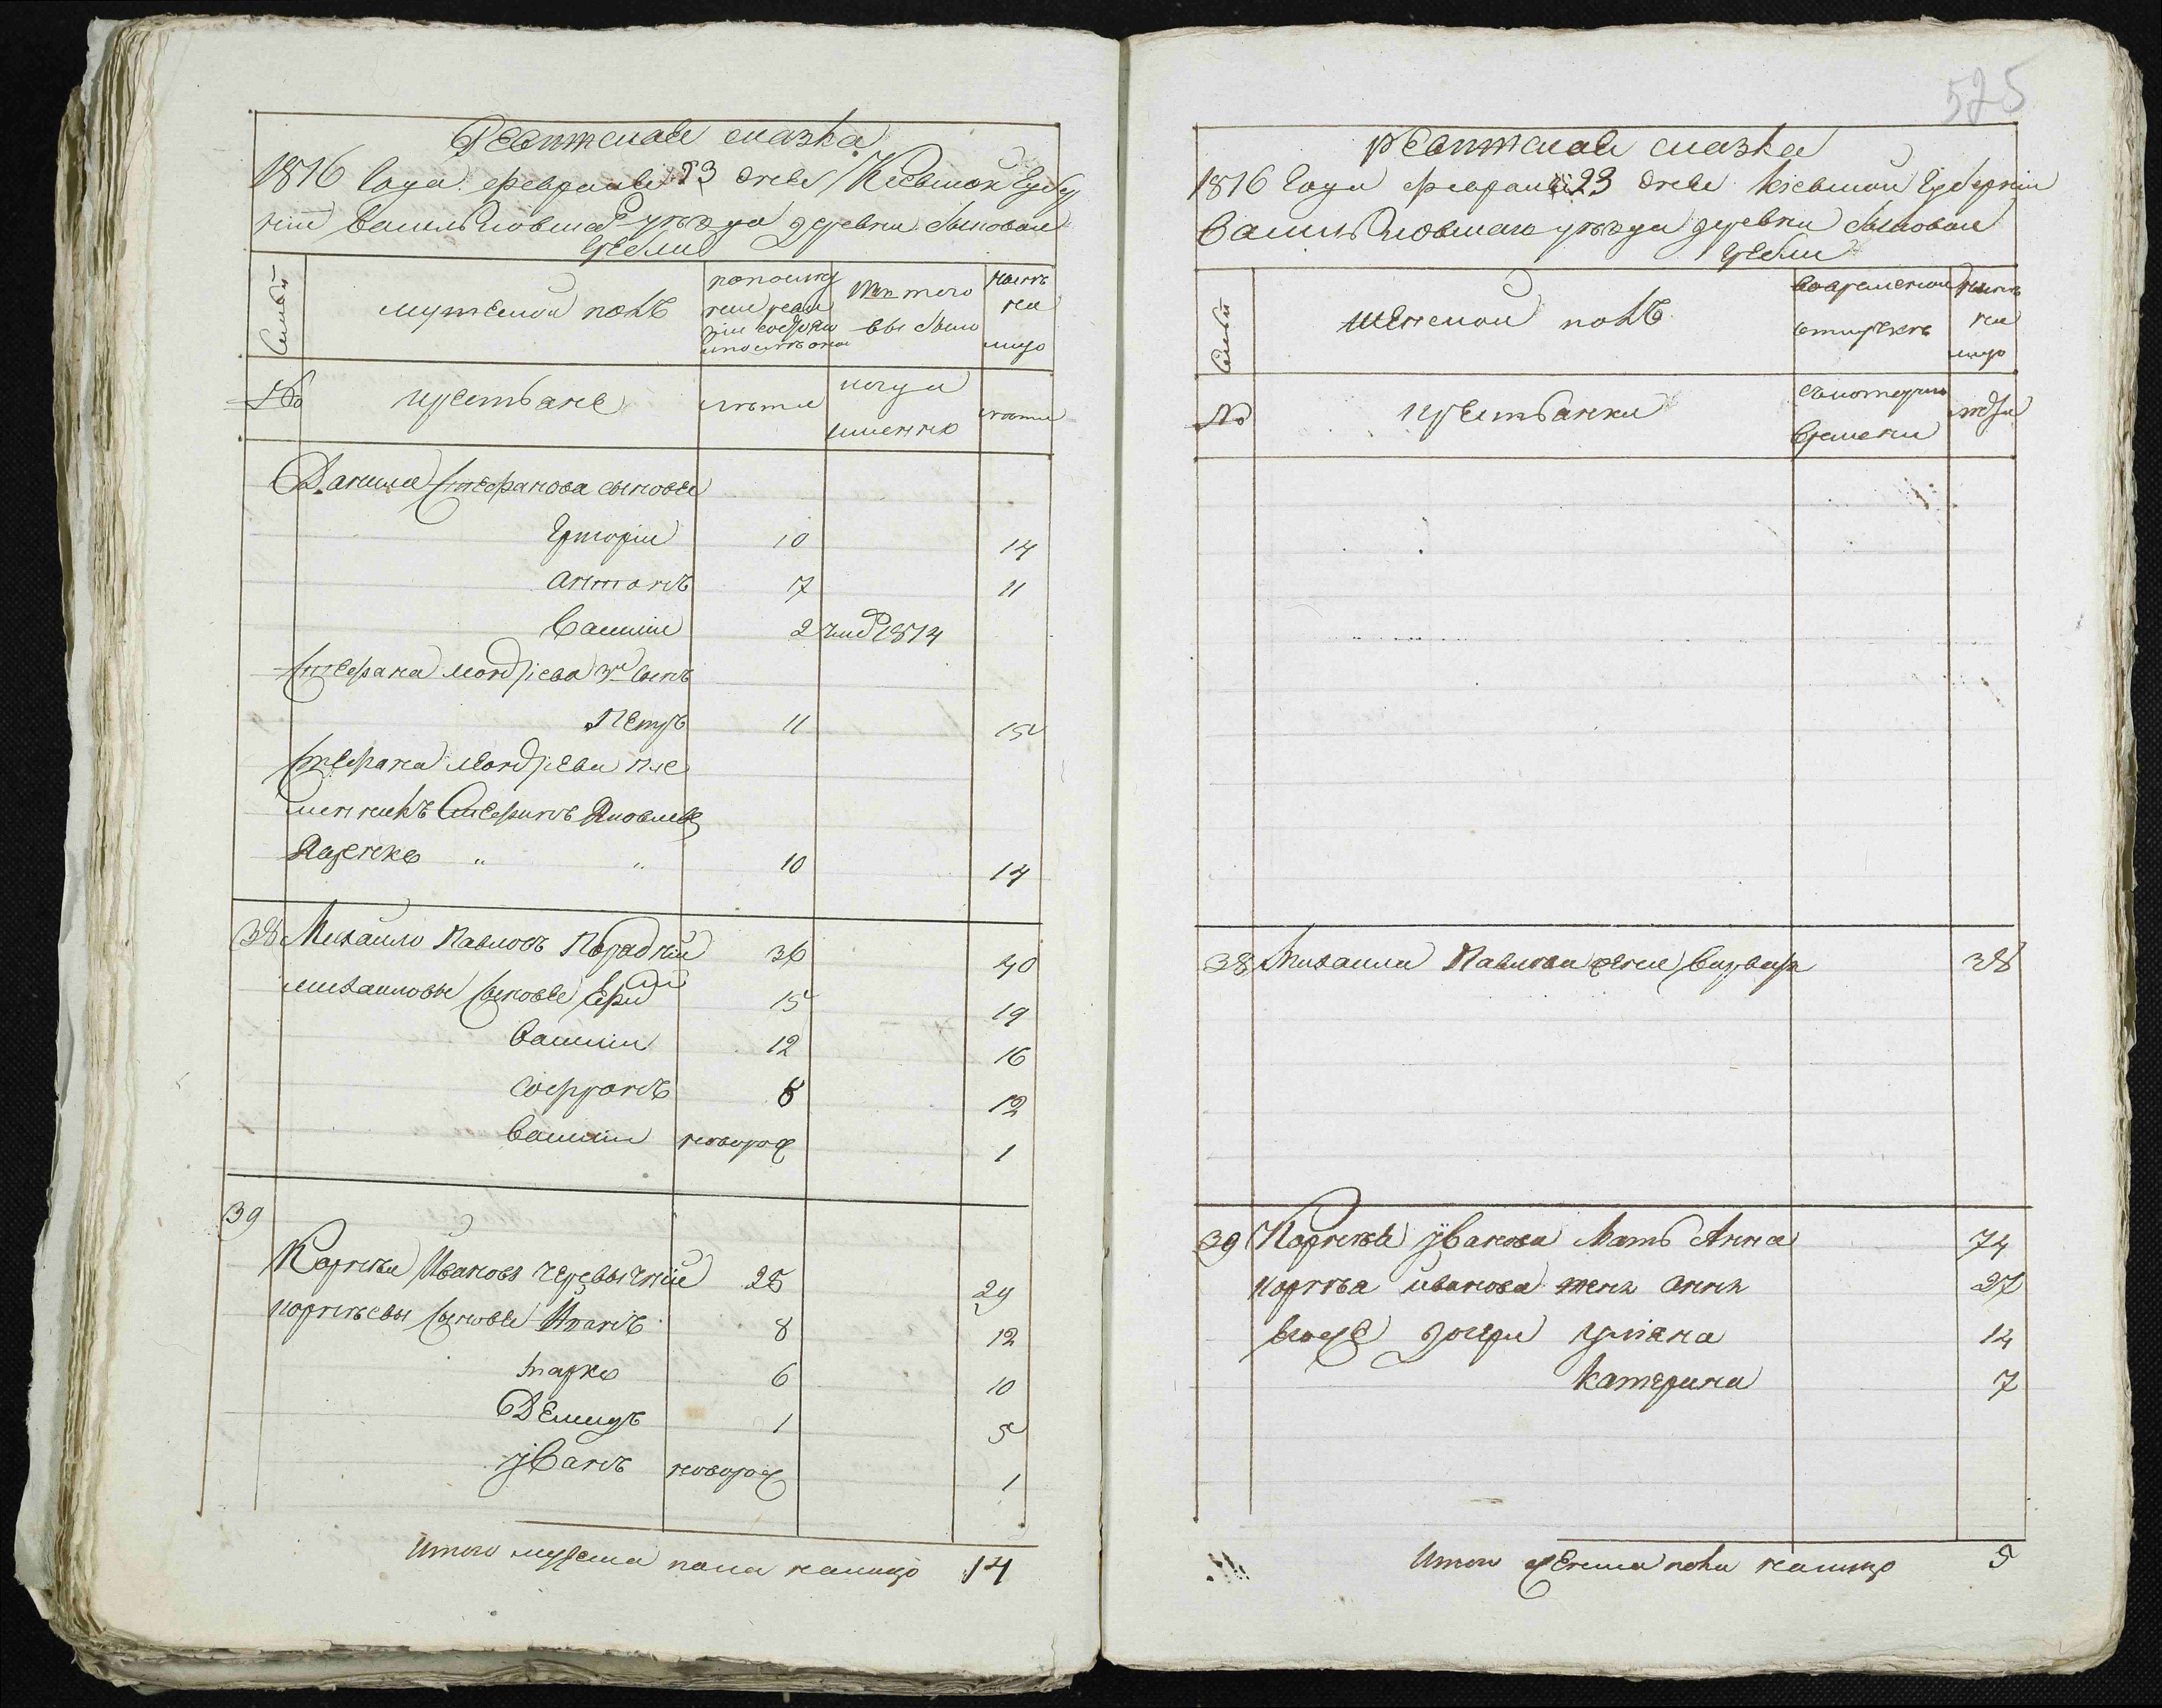 Ревижская сказка
1816 Года февраля 23 дня Киевской Губер
ніи Васильковскаго уезда деревни Быковой
Гребли
Семьи
мужеской полъ
по послед
ней реви
зіи состояло
изъ того
выбыло
ныне
на
лицо
№
крестьяне
лета
когда
именно
лета
Данила Стефанова сыновья
Григорій 10 14
антонъ 7 11
Василій 2 1814
Стефана Кондріева 3й сынъ
Петръ 11 15
Стефана Кондріева пле
менникъ Стефанъ Яковлевъ
10 14
38 Михайло Павловъ 36 40
михайловы сыновья 15 19
Василій 12 16
софронъ 8 12
Василій новорож 1
39
Корней Ивановъ Черевычній 25 29
корнеевы сыновья Иванъ 8 12
марко 6 10
Демидъ 1 5
иванъ новорож 1
Итого мужеска пола налицо 14
525
ревижская сказка
1816 Года февраля 23 дня Кіевской Губерніи
Васильковскаго уезда деревни Быковой
Гребли
Семьи
женской полъ
во временной
отлучке
ныне
на
лицо
№
крестьянки
съ котораго
времени
лета
38 Михаила Павлова жена Варвара 38
39 Корнея иванова мать Анна 74
корнея иванова жена анна 27
его же дочери ульяна 14
катерина 7
Итого женска пола налицо 5